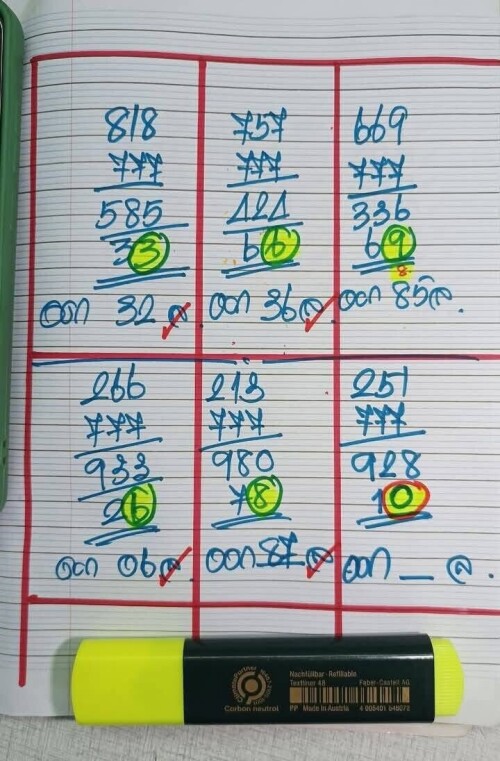 818
777
585
33
ออก 32 ล.
757
777
424
66
ออก 36 ล.
669
777
336
69
8.
ออก 85 ล.
266
777
933
26
ออก 06 ล.
213
777
980
78
ออก 87 ล
251
777
928
10
ออก _ ล.
CarbonPartner
Carbon neutral
Nachfüllbar · Refillable
Textliner 48 Faber-Castell AG
PP Made in Austria